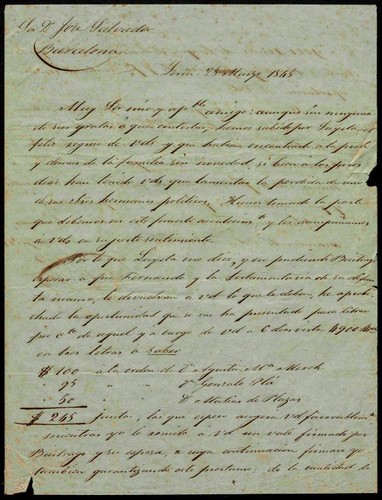 Sor Dn José Salvador
Barcelona
Soria 28 Marzo 1845
Muy Sor mio y apble amigo: aunque sin ninguna
de sus gratas á que contestar, hemos sabido por Zayola el
feliz regreso de Vds y que habian encontrado á la
y demas de la familia sin novedad, si bien a los pocos
dias han tenido Vds que lamentar la perdida de uno
de sus hermanos politicos. Hemos tomado la parte
que debemos en este funesto y los acompañamos
á Vds en su justo sentimiento.
Por lo que Zayola me dice, y no pudiendo
esperar á que Fernando y la Testamentaria de su
ta mama, le devuelvan á Vd lo que le deben, he aprove
chado la oportunidad que se me ha presentado para librar
por cta de aquel y a cargo de Vd a 6 dias vista 4900
en tres letras á saber
$ 100 a la orden de Dn Agustin Ma
" 95 " " Dn Gonzalo Plá
" 50 " " Dn Matias de Plazas
$ 245 juntas, las que espero acogera Vd favorablemte
mientras yo le remito á Vd un vale firmado por
y su esposa, a cuya continuacion firmare yo
tambien garantizando este prestamo, de la cantidad de